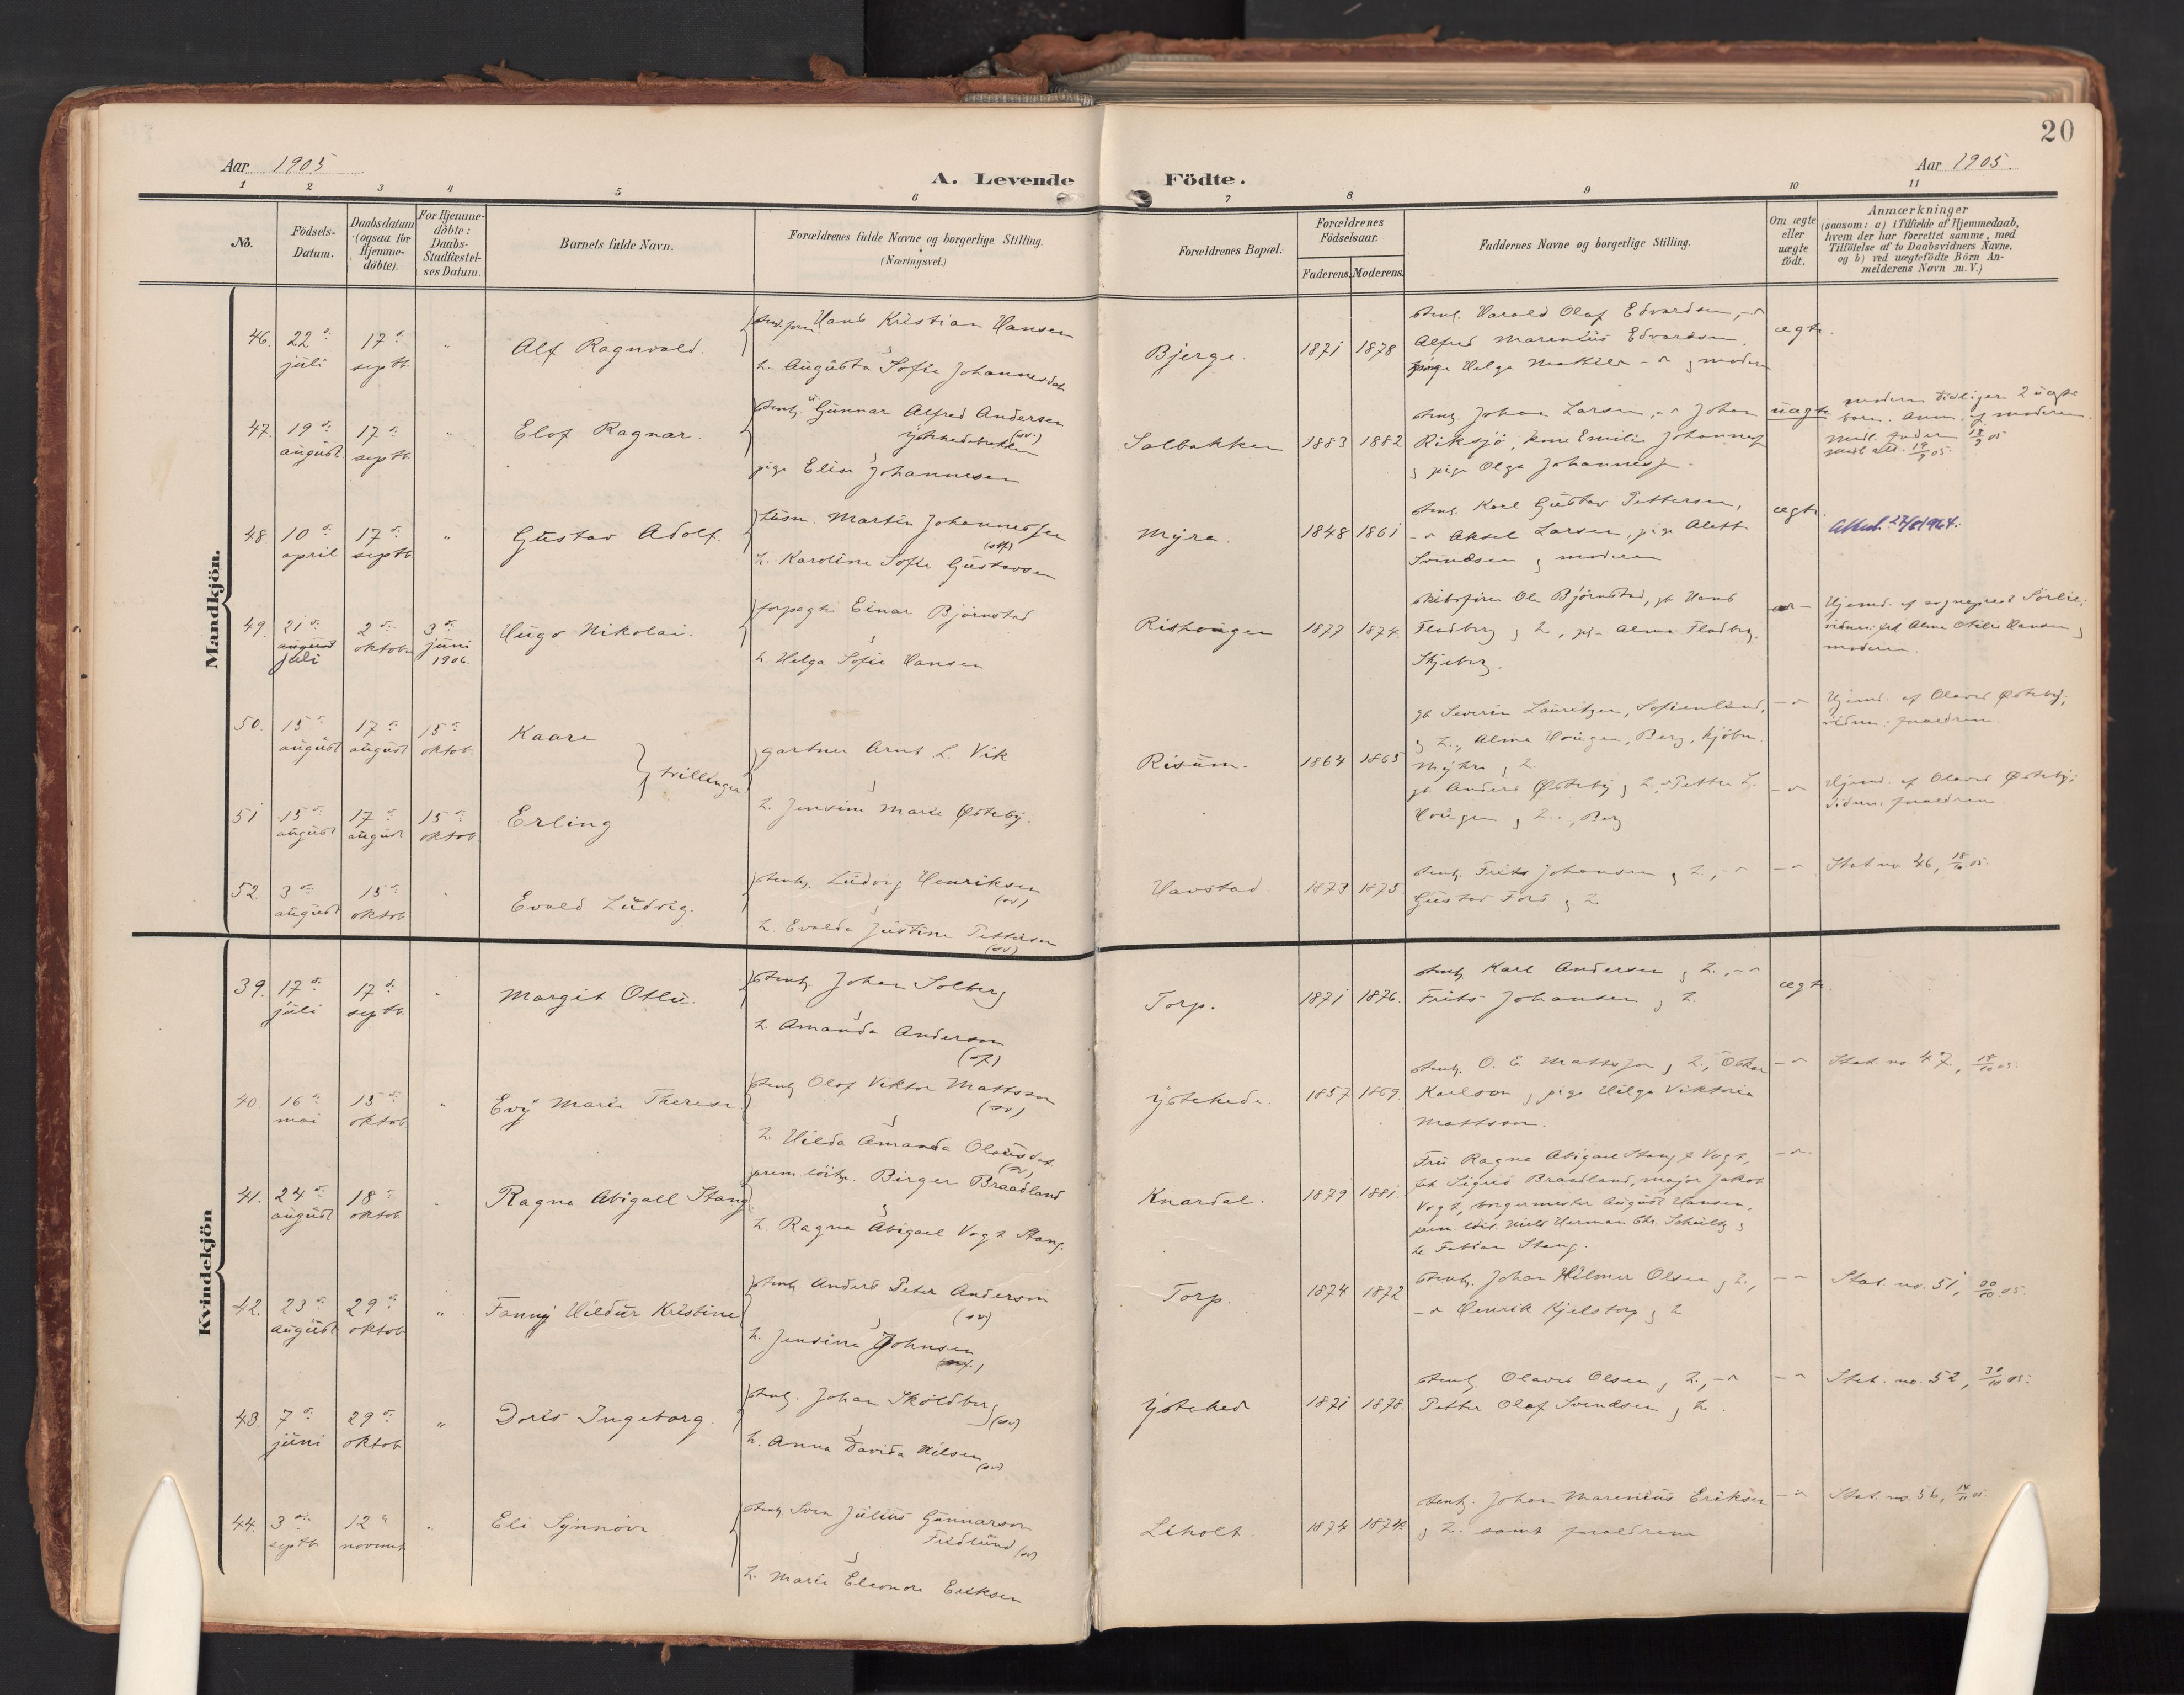 20
Aar 1905
A. Levende Födte.
Aar 1905.
1 2 3 4 5 6 7 8 9 10 11
No.
Födsels-
Datum.
Daabsdatum
(ogsaa for
Hjemme-
döbte).
For Hjemme-
döbte:
Daabs-
Stadfæstel-
ses Datum.
Barnets fulde Navn.
Forældrenes fulde Navne og borgerlige Stilling.
(Næringsvei.)
Forældrenes Bopæl.
Forældrenes
Födselsaar.
Faderens. Moderens.
Faddernes Navne og borgerlige Stilling.
Om ægte
eller
uægte
födt.
Anmærkninger
(saasom: a) i Tilfælde af Hjemmedaab,
hvem der har forrettet samme, med
Tilföielse af to Daabsvidners Navne,
og b) ved uægtefödte Börn An-
melderens Navn m. V.)
Mandkjön.
46. 22 juli 17 septb. " Alf Ragnvald.
Hans Kristian Hansen
h. Augusta Sofie Johannesdat.
Bjerge. 1871 1878
stenh. Harald Olaf Edvardsen,
Alfred Marenius Edvardsen,
pige Helga Mathilde & moderen
ægte.
47. 19 august 17 septb. " Elof Ragnar.
stenh. Gunnar Alfred Andersen (sv.)
pige Elise Johannesen
Solbakken 1883 1882
stenh. Johan Larsen, Johan
Riksjö, kone Emilie Johannes
& pige Olga Johannes
uægte
moderen tidligere 2 uægte
börn. anm. af moderen.
48. 10 april 17 septb. " Gustav Adolf.
husm. Martin Johannessen
h. Karoline Sofie Gustavsen
Myra. 1848 1861
stenh. Karl Gustav Pettersen,
Aksel Larsen, pige Alett
Svendsen & moderen
ægte.
49. 21 august juli 2 oktober 3 juni 1906. Hugo Nikolai.
forpagter Einar Björnstad
h. Helga Sofie Hansen
Rishaugen 1877 1874.
skibsförer Ole Björnstad, gb. Hans
Fladberg & h., pige Alma Fladberg.
Skjeberg.
Hjemd. af sogneprest Sörlie;
vidner: frk Alma Otilie Hansen &
moderen.
50. 15 august 17 august 15 oktob. Kaare
tvillinger
gartner Arnt L. Vik
h. Jensine Marie Østeby.
Risum. 1864 1865
gb. Severin Lauritzen, Sofienlund,
& h., Alma Haugen, Berg, kjöbm.
Myhre & h.
Hjemd. af Olaves Østeby;
vidner: foraeldrene.
51 15 august 17 august 15 oktob. Erling
gb Anders Østeby & h., Petter L.
Haugen & h., Berg
Hjemd. af Olaves Østeby;
vidner: foraeldrene.
52. 3 august 15 oktob. " Evald Ludvig.
stenh. Ludvig Henriksen (sv)
h. Evalda Justine Pettersen (sv)
Havstad. 1873 1875.
stenh. Frits Johansen & h.,
Gustav Fors & h
Stat no 46, 18/10 05.
Kvindekjön
39. 17 juli 17 septb. " Margit Otlu.
stenh. Johan Solberg
h. Amanda Anderson
Torp. 1871 1876.
stenh. Karl Andersen & h.,
Frits Johansen & h.
ægte.
40. 16 mai 15 oktob. " Evy Marie Therese.
stenh Olof Viktor Mattsson (sv)
h Hilda Amanda Olausdat. (sv)
Ystehede. 1857 1869.
stenh. O. E Mattsson & h., Oskar
Karlson & pige Helga Viktoria
Mattsson.
Stat no 47, 18/10 05.
41. 24 august 18 oktob. Ragna Abigael Stang
prem. löitn. Birger Braadland
h. Ragna Abigael Vogt Stang.
Knardal. 1879 1881.
Fru Ragna Abigael Stang f. Vogt,
frk Sigrid Braadland, major Jakob
Vogt, borgermester August Hansen,
prem. löit. Niels Herman Chr. Schultz &
hr. Fabian Stang.
42. 23 august 29 oktob " Fanny Hildur Kristine
stenh. Anders Peter Anderson (sv)
h. Jensine Johnsen
Torp. 1874 1872
stenh. Johan Hilmer Olsen & h.,
Henrik Kjelstorp & h
Stat. no. 51, 30/10 05.
43. 7 juni 29 oktob " Doris Ingeborg.
stenh. Johan Sköldberg (sv)
h. Anna Davida Nilsen (sv)
Ystehede 1871 1878.
stenh. Olaves Olsen & h.,
Petter Olaf Svendsen & h.
Stat. no. 52, 30/10 05.
44. 3 septb 12 novemb " Eli Synnöve
stenh. Sven Julius Gunnarson
Fridlund (sv)
h. Marie Eleonore Eriksen
Liholt. 1874 1874.
stenh. Johan Marenius Eriksen
& h. samt foraeldrene
Stat. no. 56, 14/11 05.